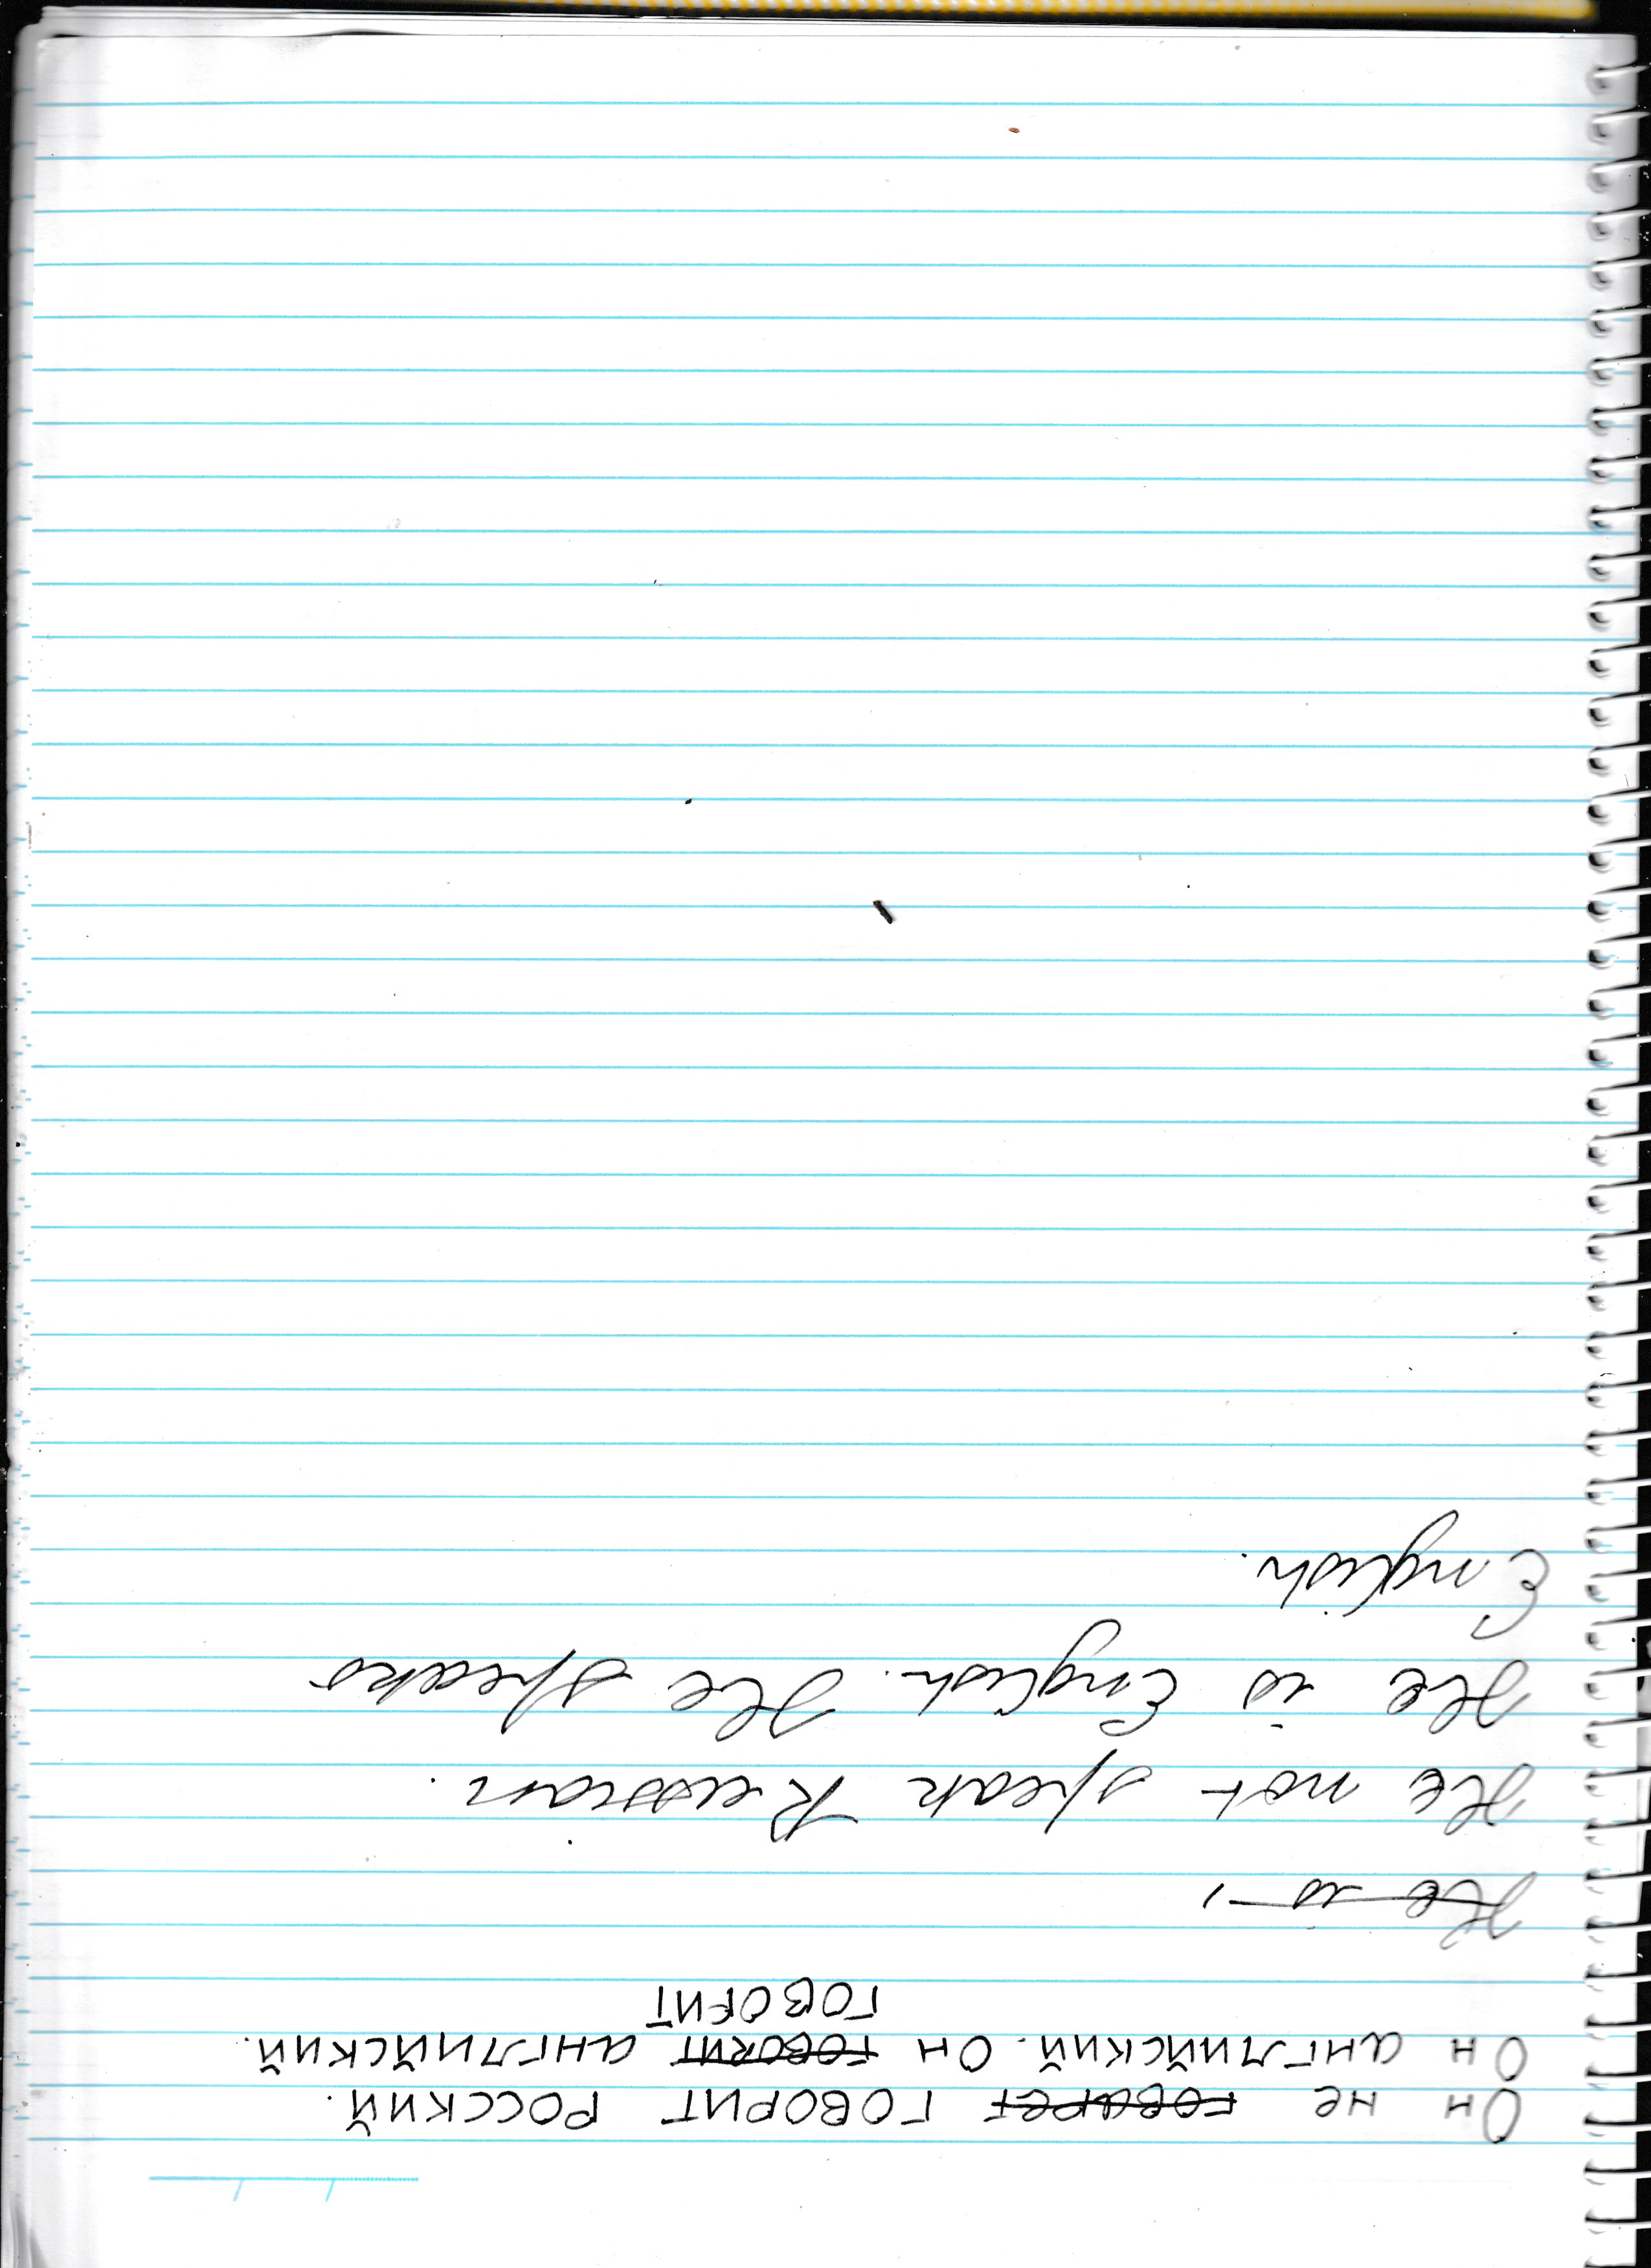 Он не говарет говорит росский.
Он английский. Он говокит английский.
говогит
He is,
He not speak Russian.
He is English. He speaks
English.